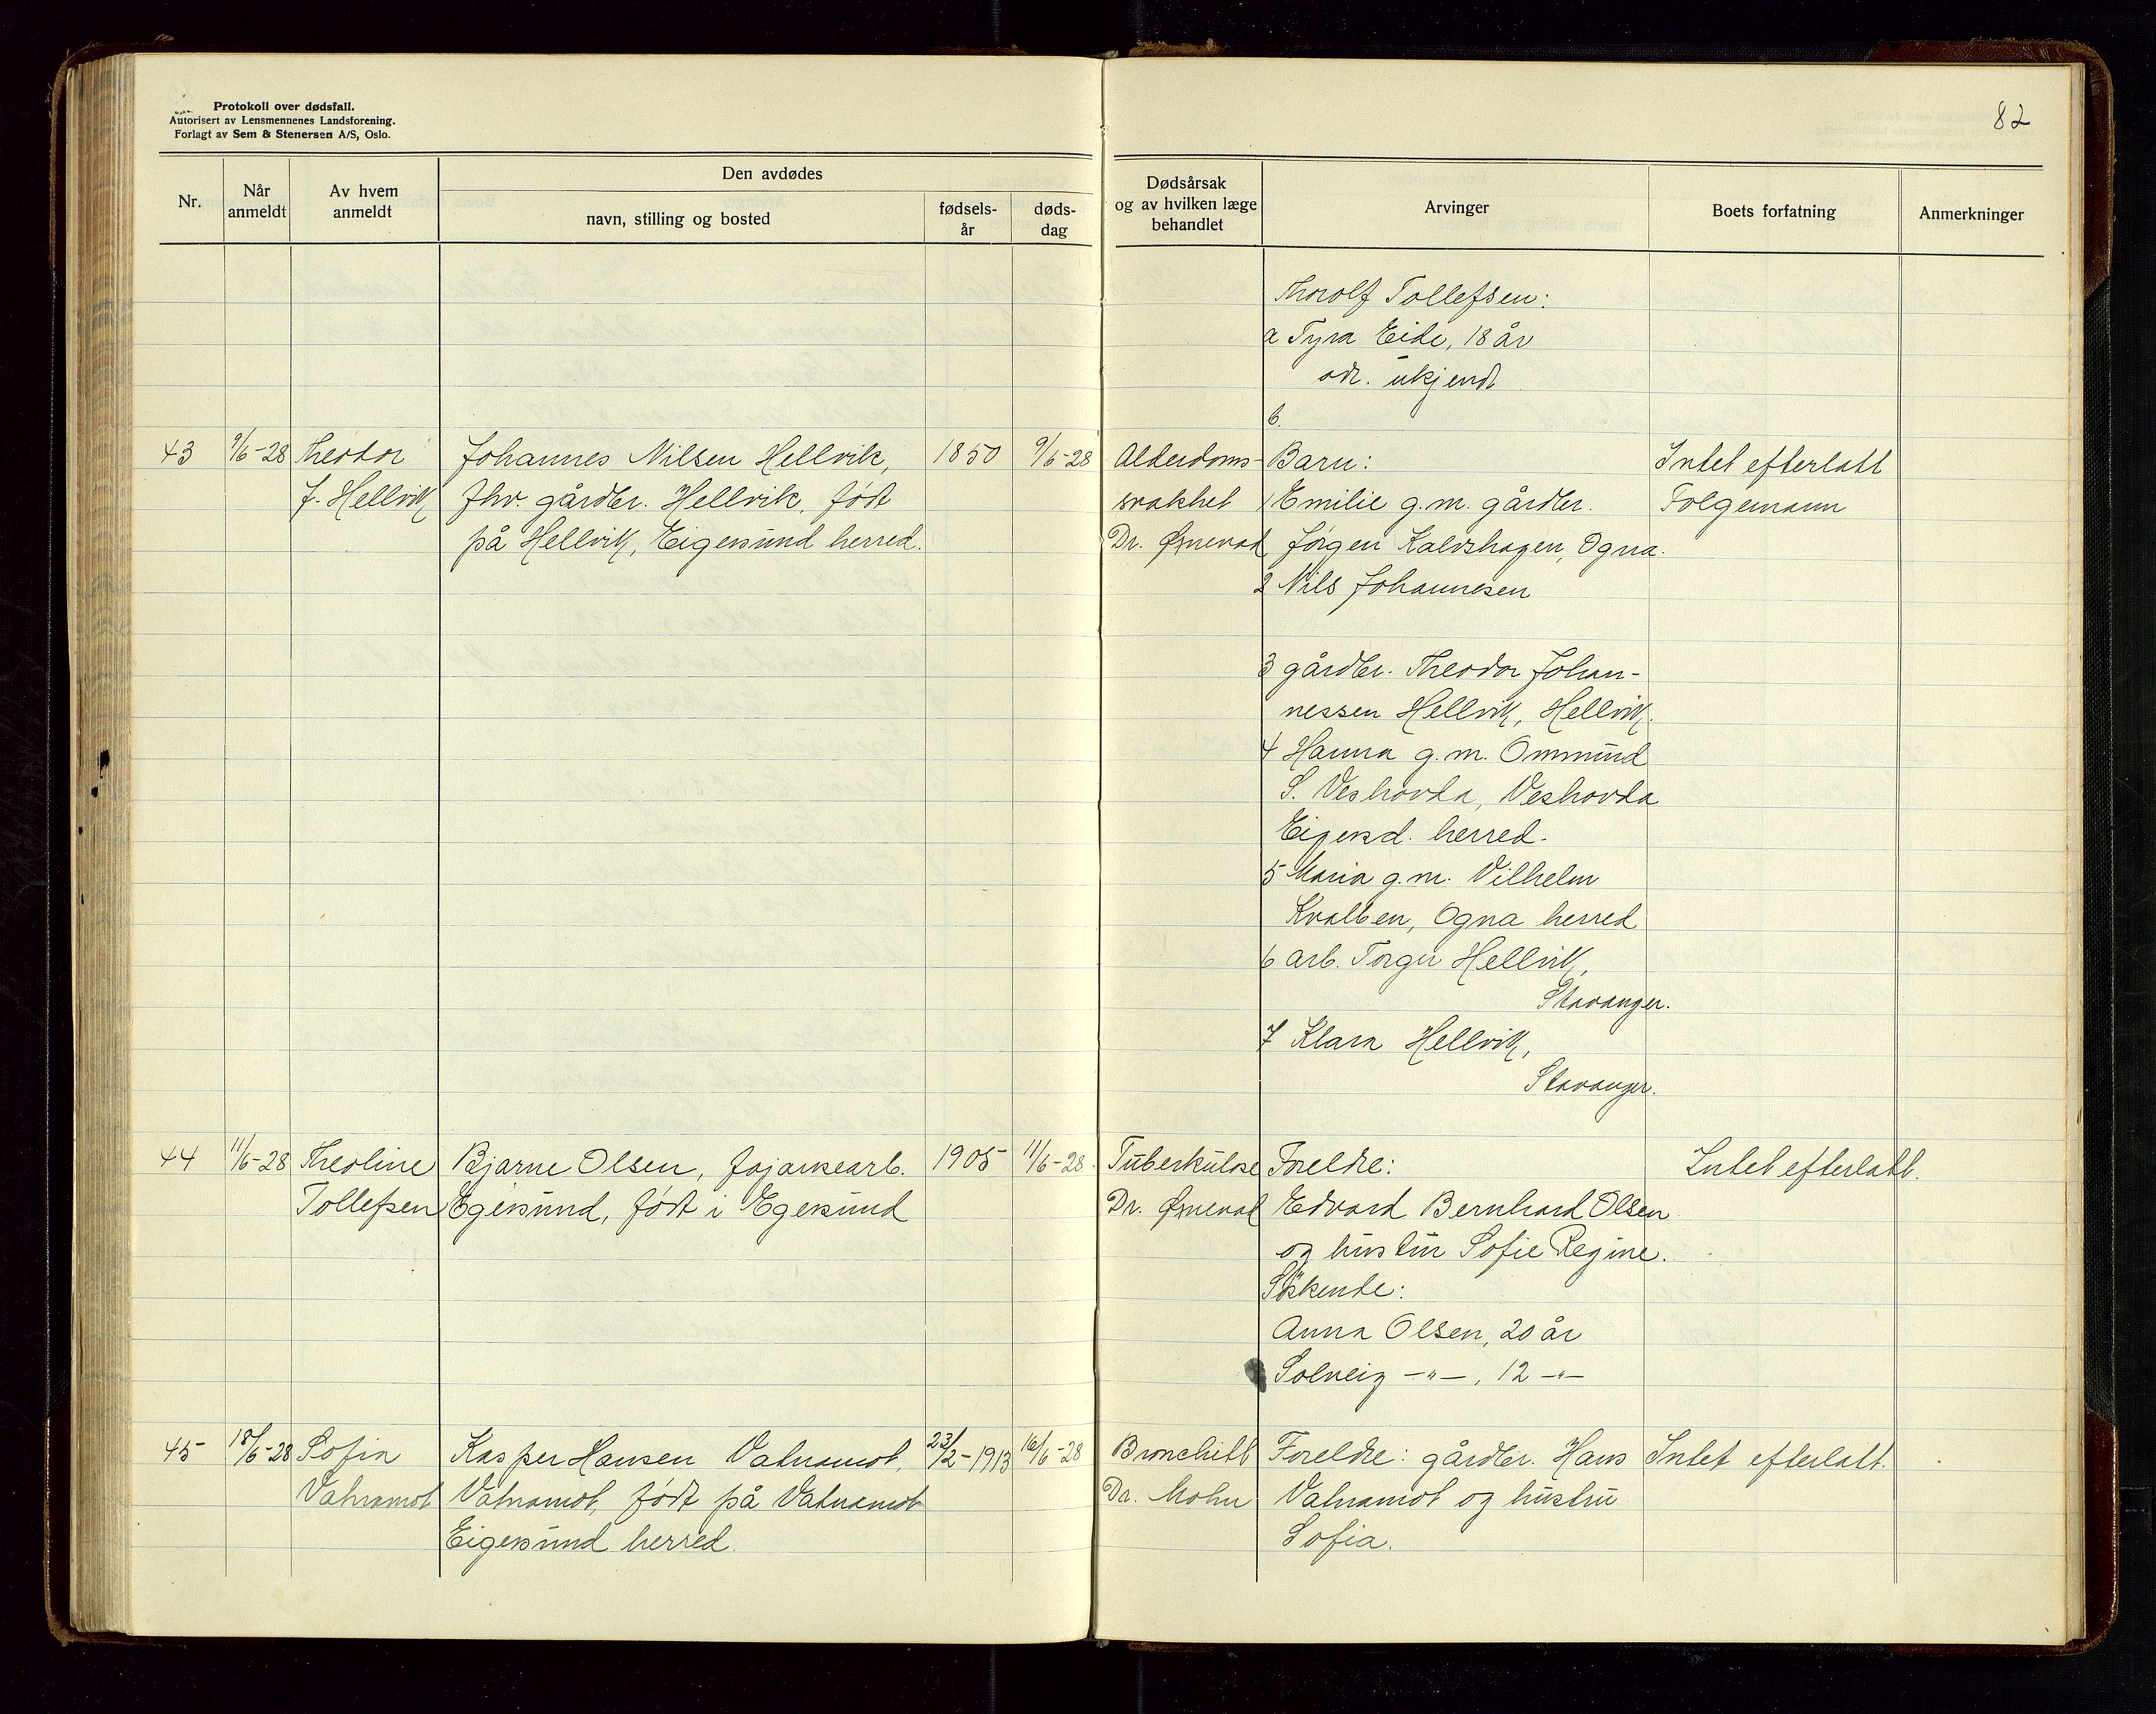 Protokoll over dødsfall.
Autorisert av Lensmennenes Landsforening.
Forlagt av Sem & Stenersen A/S, Oslo.
82
Nr.
Når anmeldt
Av hvem anmeldt
Den avdødes
navn, stilling og bosted
fødsels-år
døds-dag
Dødsårsak og av hvilken læge behandlet
Arvinger
Boets forfatning
Anmerkninger
Thorolf Tollefsen:
a Tyra Eide, 18 år
adr. ukjendt
b.
43 9/6-28 Theodor Johannes Nilsen Hellvik, 1850 9/6-28 Alderdoms- Barn: Intet efterlatt
J. Hellvik fhv. gårdbr. Hellvik, født svakhet 1 Emilie g.m. gårdbr. Folgemann
på Hellvik, Eigersund herred. Dr. Ørnevad Jörgen Kalvshagen, Ogna.
2 Nils Johannesen
3 gårdbr. Theodor Johan-
nessen Hellvik, Hellvik.
4 Hanna g.m. Ommund
S. Veshovda, Veshovda
Eigersd. herred.
5 Maria g.m. Vilhelm
Kvalben, Ogna herred
6 arb. Torger Hellvik,
Stavanger.
7 Klara Hellvik,
Stavanger.
44 11/6-28 Theoline Bjarne Olsen, fajansearb. 1905 11/6-28. Tuberkulose Foreldre: Intet efterlatt.
Tollefsen Egersund, födt i Egersund Dr. Ørnevad Edvard Bernhard Olsen
og hustru Sofie Regine.
Söskende:
Anna Olsen, 20 år
Solveig -"-, 12 -"-
45 18/6-28 Sofia Kasper Hansen Vatnamot, 23/2-1913 16/6-28 Bronchitt Foreldre: gårdbr. Hans Intet efterlatt.
Vatnamot Vatnamot, födt på Vatnamot Dr. Mohn Vatnamot og hustru
Eigersund herred. Sofia.